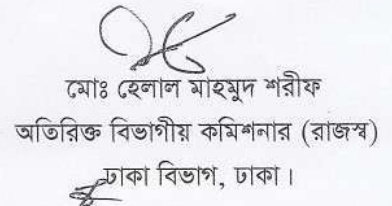 মোঃ হেলাল মাহমুদ শরীফ
অতিরিক্ত বিভাগীয় কমিশনার (রাজস্ব)
ঢাকা বিভাগ, ঢাকা।